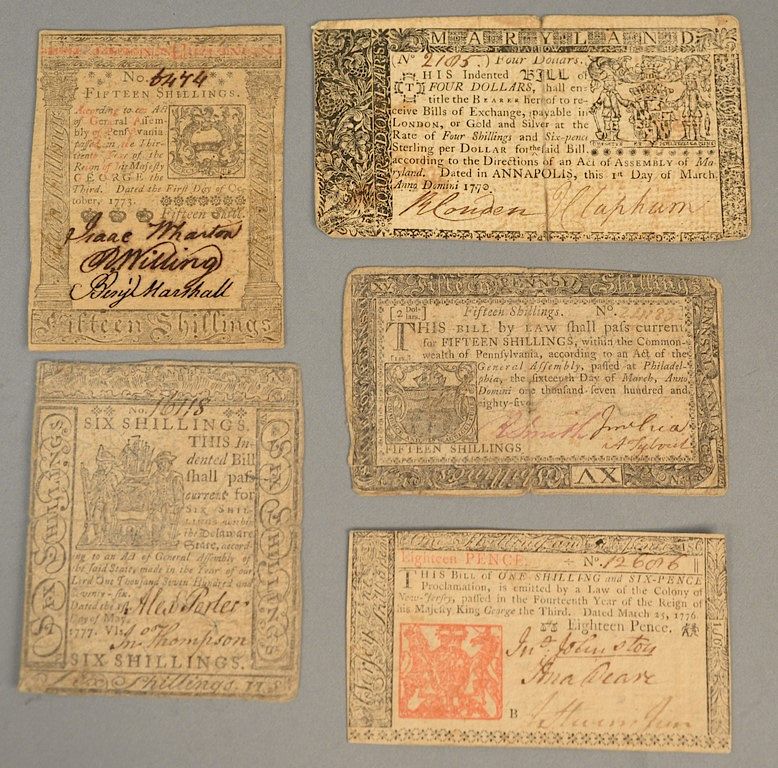 No. 6474
FIFTEEN SHILLINGS.
According to an Act
of General Assem-
bly of Pennsylvania
passed in the Thir-
teenth Year of the
Reign of his Majesty
GEORGE the
Third. Dated the First Day of Oc-
tober, 1773.
Fifteen Shill.
Isaac Wharton
Willing
Benj Marshall
Fifteen Shillings
MARYLAND
(No 2185.) Four Dollars.
THIS Indented BILL of
FOUR DOLLARS, shall en-
title the BEARER hereof to re-
ceive Bills of Exchange, payable in
LONDON, or Gold and Silver at the
Rate of Four Shillings and Six-pence
Sterling per DOLLAR for the said Bill,
according to the Directions of an Act of ASSEMBLY of Ma-
ryland. Dated in ANNAPOLIS, this 1st Day of March,
Anno Domini 1770.
Couden Clapham
XV Fifteen PENNSY Shillings
[2 Dol-
lars.] Fifteen Shillings. No.
THIS BILL by LAW shall pass current
for FIFTEEN SHILLINGS, within the Common-
wealth of Pennsylvania, according to an Act of the
General Assembly, passed at Philadel-
phia, the sixteenth Day of March, Anno
Domini one thousand seven hundred and
eighty-five.
Smith
FIFTEEN SHILLINGS
XV
No. 16118
SIX SHILLINGS.
THIS In-
dented Bill
shall pass
current for
SIX SHIL-
LINGS within
the Delaware
State, accord-
ing to an Act of General Assembly of
the said State, made in the Year of our
Lord One Thousand Seven Hundred and
Seventy-six.
Dated the
Day of May,
1777.
Alex Porter
Jno Thompson
SIX SHILLINGS.
Six Shillings.
SIX SHILLINGS
SIX SHILLINGS
Eighteen PENCE. No. 12686
THIS Bill of ONE SHILLING and SIX-PENCE
Proclamation, is emitted by a Law of the Colony of
New-Jersey, passed in the Fourteenth Year of the Reign of
his Majesty King George the Third. Dated March 25, 1776.
Eighteen Pence.
Jno Johnston
Deare
B